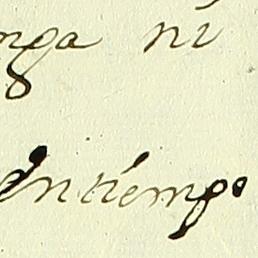 nga ni
entiempo